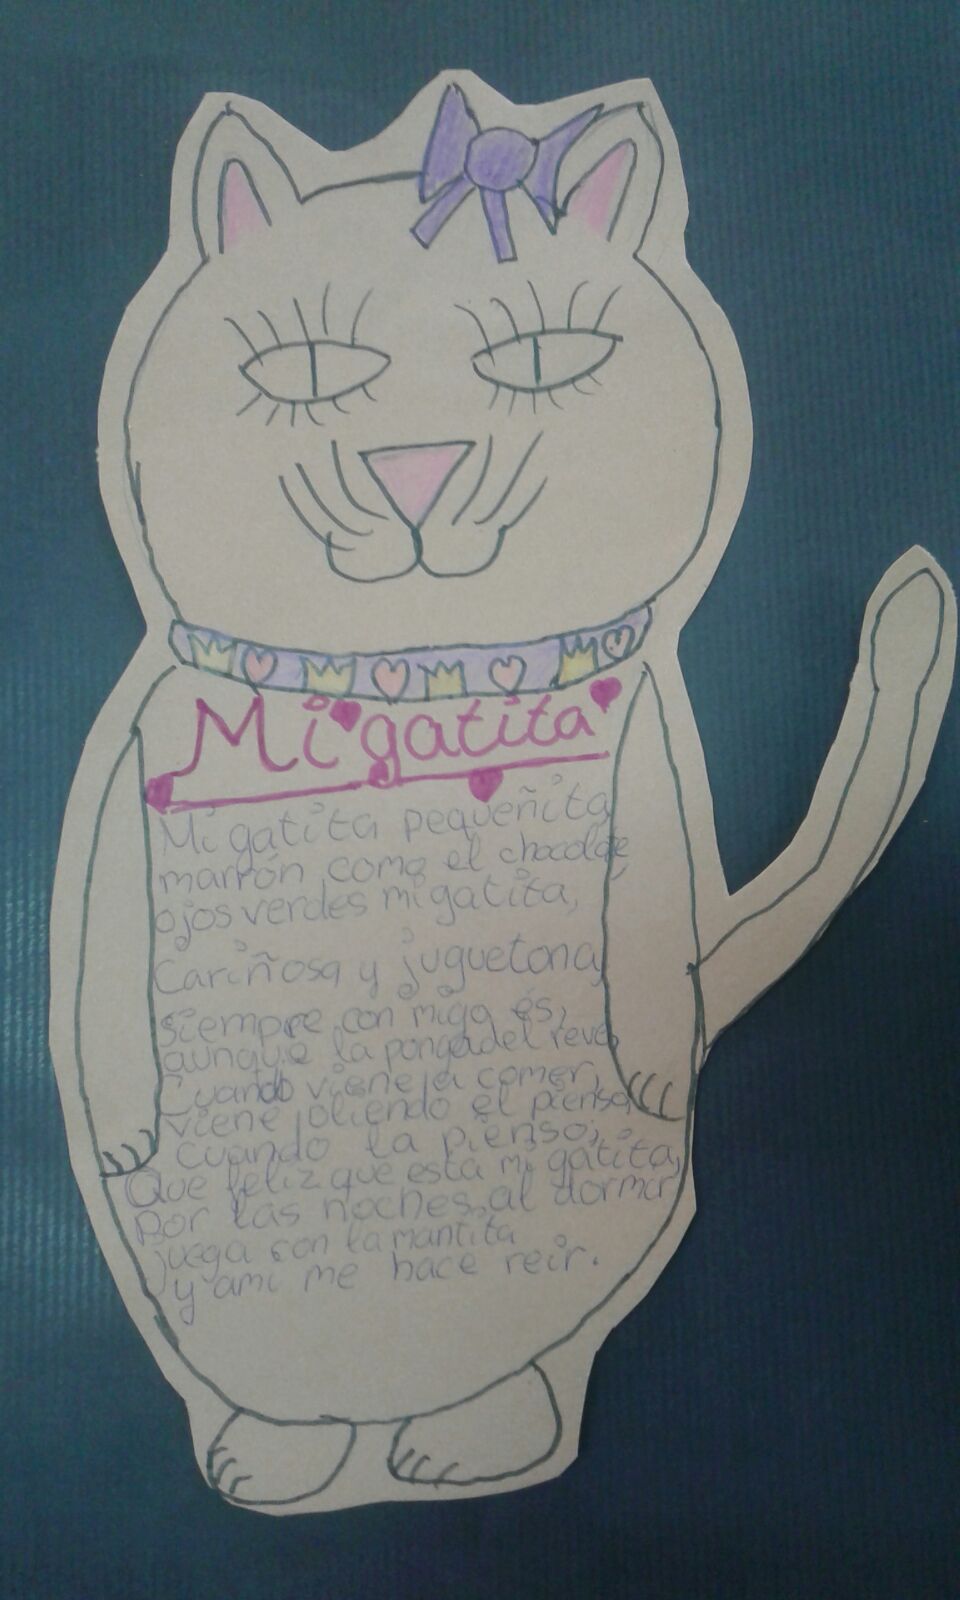 Mi gatita
Mi gatita pequeñita,
marrón como el chocolate,
ojos verdes mi gatita,
Cariñosa y juguetona,
siempre con migo es,
aunque la ponga del reves,
Cuando viene a comer,
viene oliendo el pienso,
cuando la pienso;
Que feliz que esta mi gatita,
Por las noches, al dormir
juega con la mantita
y ami me hace reir.